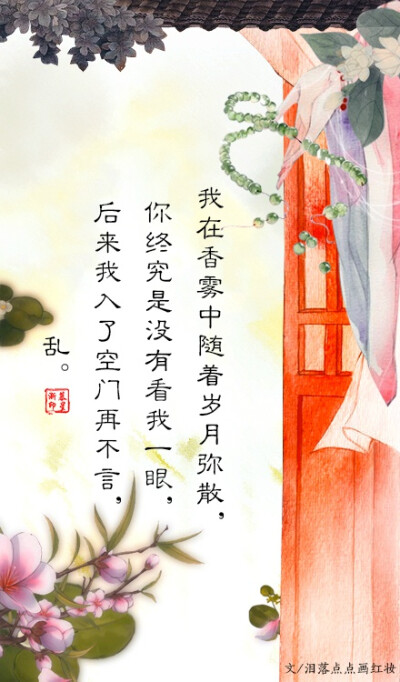 我在香雾中随着岁月弥散，
你终究是没有看我一眼，
后来我入了空门再不言，
乱。
文/泪落点点画红妆